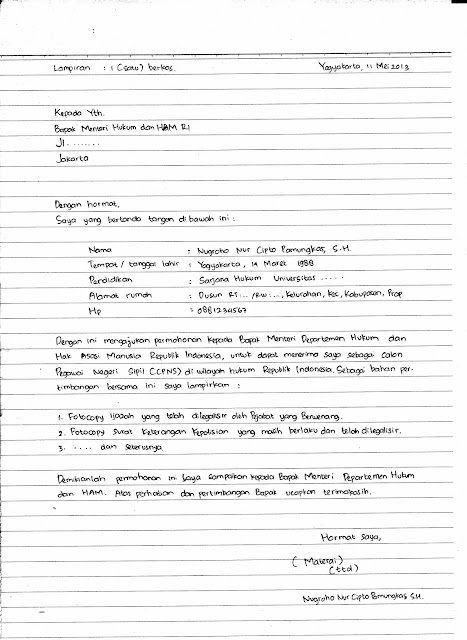 Lampiran : 1 (satu) berkas. Yogyakarta, 11 Mei 2013
Kepada Yth.
Bapak Menteri Hukum dan HAM RI
Jl. .......
Jakarta
Dengan hormat,
Saya yang bertanda tangan di bawah ini :
Nama : Nugroho Nur Cipto Pamungkas, S.H.
Tempat / tanggal lahir : Yogyakarta, 14 Maret 1988
Pendidikan : Sarjana Hukum Universitas .....
Alamat rumah : Dusun RT... /RW:..., Kelurahan, Kec, Kabupaten, Prop
Hp : 0881234567
Dengan ini mengajukan permohonan kepada Bapak Menteri Departemen Hukum dan
Hak Asasi Manusia Republik Indonesia, untuk dapat menerima saya sebagai Calon
Pegawai Negeri Sipil (CPNS) di wilayah hukum Republik Indonesia. Sebagai bahan per-
timbangan bersama ini saya lampirkan :
1. Fotocopy Ijazah yang telah dilegalisir oleh Pejabat yang Berwenang.
2. Fotocopy Surat Keterangan Kepolisian yang masih berlaku dan telah dilegalisir.
3. ..... dan seterusnya.
Demikianlah permohonan ini saya sampaikan kepada Bapak Menteri Departemen Hukum
dan HAM. Atas perhatian dan pertimbangan Bapak ucapkan terimakasih.
Hormat saya,
( Materai )
(ttd)
Nugroho Nur Cipto Pamungkas S.H.